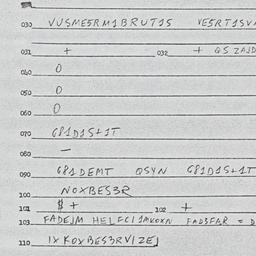 030 VUSME5RM1BRUT15 VE5RT15V
031 + 032 + Q5 ZAJD
040 0
050 0
060 0
070 G81D15+1T
080 -
090 G81DEMT Q5YN G81D15+1T
100 NOXBES3R
101 $ + 102 +
103 FADEJM HELFCI1MKOXN FAD3FAR = D
110 IXKOXBES3RVIZEJ